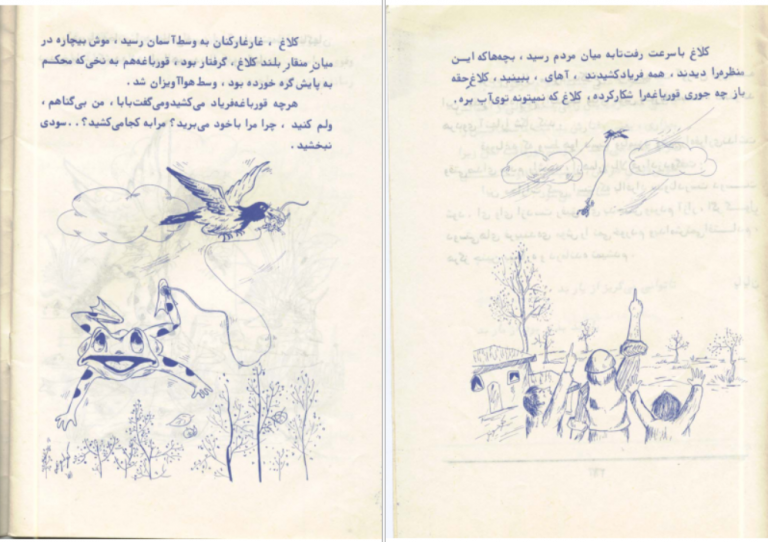 کلاغ ، غارغارکنان به وسط آسمان رسید ، موش بیچاره در
میان منقار بلند کلاغ ، گرفتار بود ، قورباغه‌هم به نخی‌که محکم
به پایش گره خورده بود ، وسط هوا آویزان شد .
هرچه قورباغه‌فریاد می‌کشیدومی‌گفت‌بابا ، من بی‌گناهم ،
ولم کنید ، چرا مرا باخود می‌برید؟ مرابه کجامی‌کشید؟ . .سودی
نبخشید .
کلاغ باسرعت رفت‌تابه میان مردم رسید ، بچه‌هاکه ایـن
منظره‌را دیدند ، همه فریادکشیدند ، آهای ، ببینید ، کلاغ‌حقه
باز چه جوری قورباغه‌را شکارکرده ، کلاغ که نمیتونه توی‌آب بره.